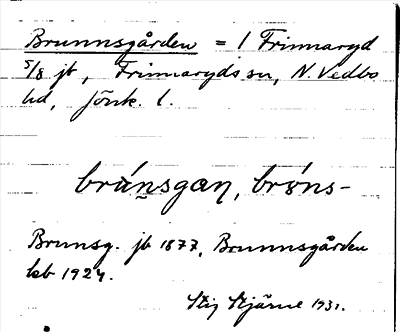 Brunnsgården = 1 Frinnaryd
5/8 jb, Frinnaryds sn, N. Vedbo
hd, Jönk. l.
brún̰sgaɳ, brøns-
Brunsg. jb 1877, Brunnsgården
kb 1924.
Stig Stjärne 1931.